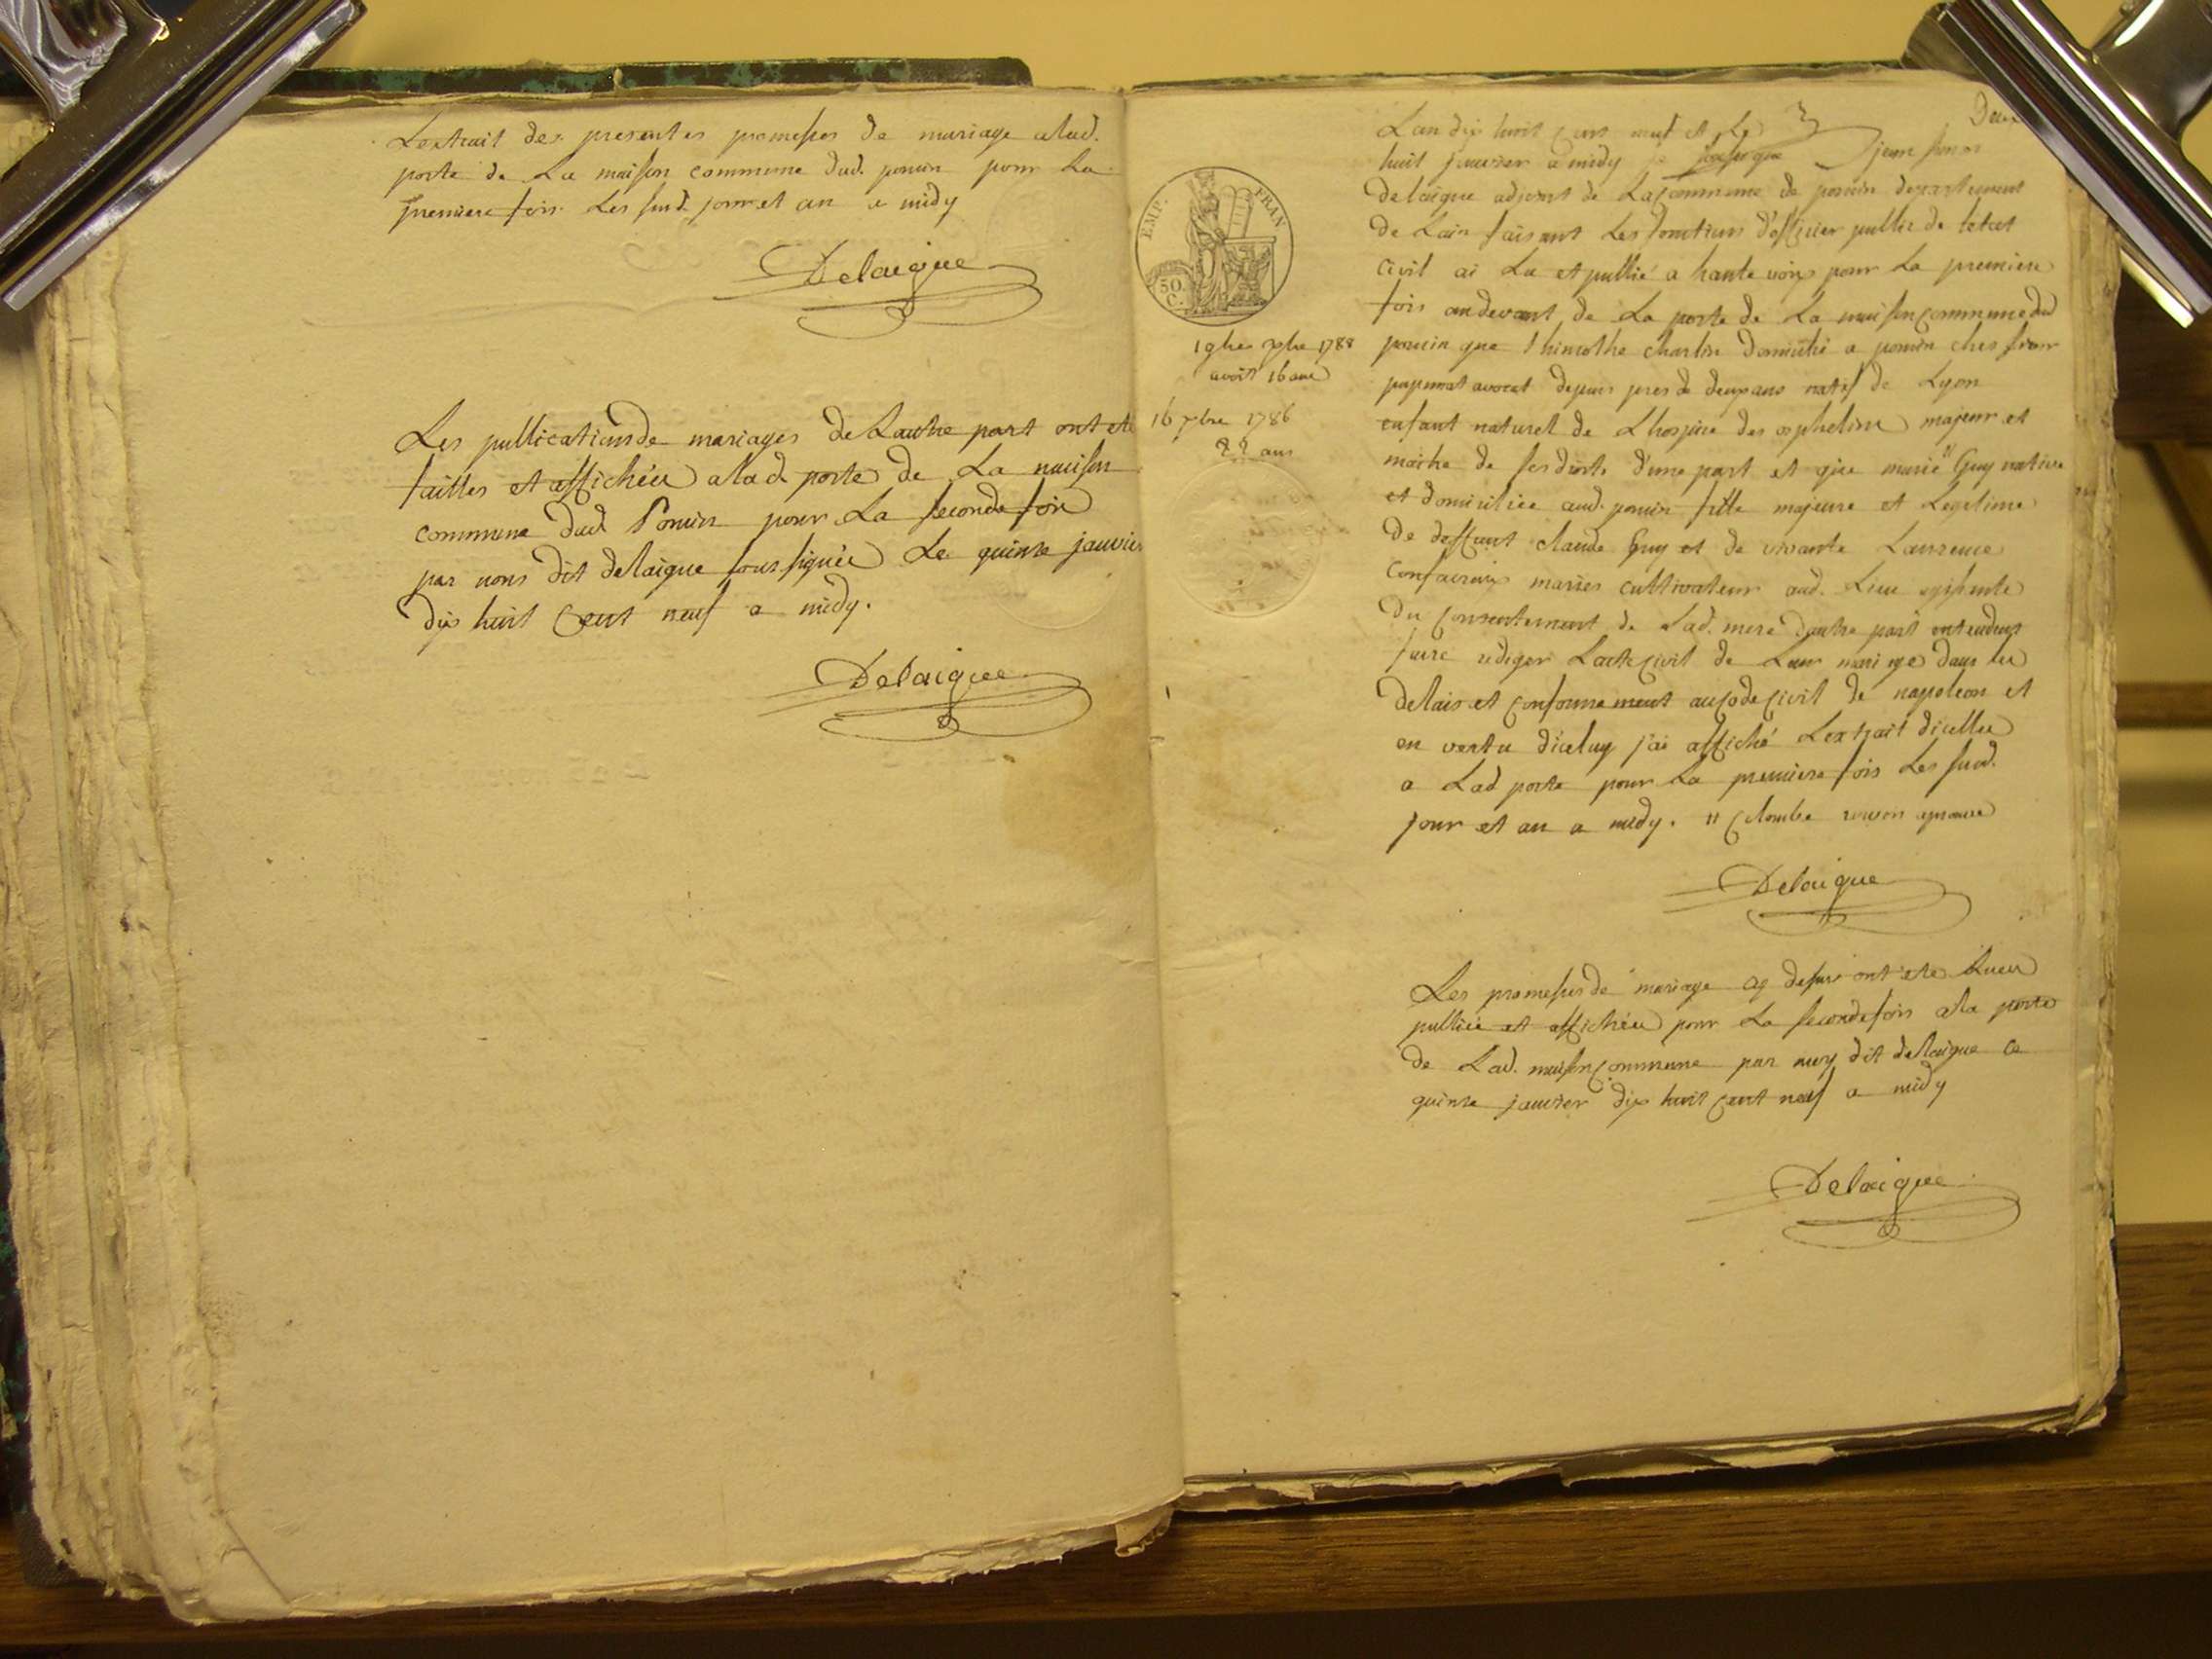 Lextrait des presentes promesses de mariage alad.
porte de La maison commune dud. poncin pour La
premiere fois Les sud. jour et an a midy
Delaigue
Les publications de mariages de Lautre part ont ete
faittes et affichées alad porte de La maison
commune dud Poncin pour La seconde fois
par nous dit delaigue soussignée Le quinze janvier
dix huit cent neuf a midy.
Delaigue
Deux
EMP. FRAN
50.
C.
7bre 1788
avoit 16 ans
16 7bre 1786
22 ans
Lan dix huit cent neuf et Le
huit janvier a midy je jean
delaigue adjoint de La commune de poncin departement
de Lain faisant Les fonctions d'officier public de letat
Civil ai Lu et publié a haute voix pour La premiere
fois audevant de La porte de La maison commune dud
poncin que thimothe charlin domicilié a poncin ches
avocat depuis pres de deux ans natif de Lyon
enfant naturel de Lhospice des orphelins majeur et
maitre de ses droits d'une part et que marie " Guy native
et domiciliée aud. poncin fille majeure et Legitime
de deffunt claude Guy et de vivante Laurence
mariés cultivateur aud. Lieu
du consentement de Lad. mere dautre part entendent
faire rediger Lacte civil de Leur mariage dans les
delais et conformement au code civil de napoleon et
en vertu diceluy j'ai affiché Lextrait dicelles
a Lad porte pour La premiere fois Les sud.
jour et an a midy. " Colombe renvoi aprouvé
Delaigue
Les promesses de mariage cy dessus ont ete Lues
publiée et affichées pour La seconde fois a la porte
de Lad. maison commune par moy dit delaigue ce
quinze janvier dix huit cent neuf a midy
Delaigue